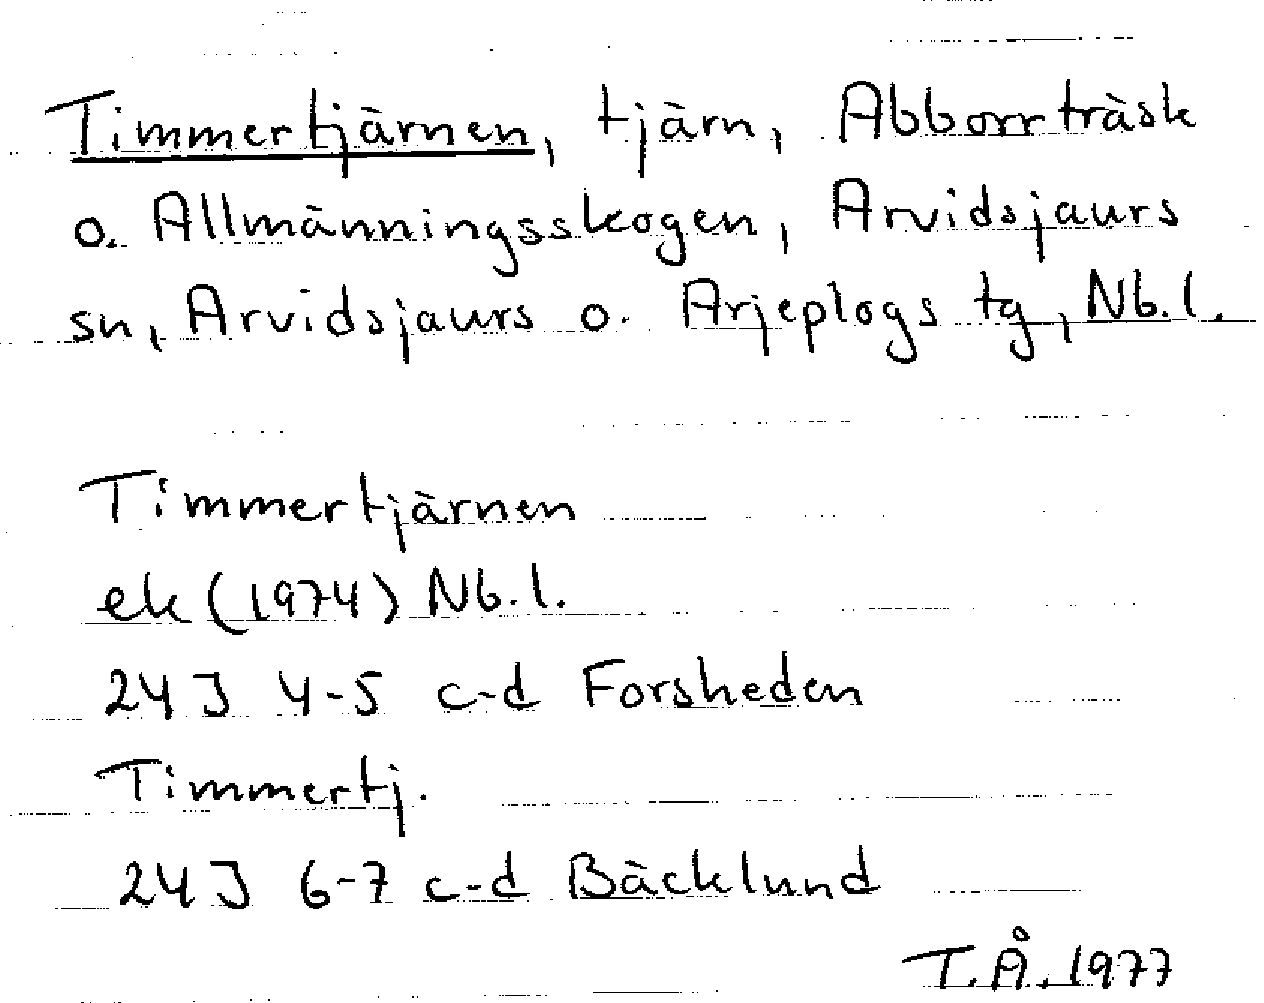 Timmertjärnen, tjärn, Abborrträsk
o. Allmänningsskogen, Arvidsjaurs
sn, Arvidsjaurs o. Arjeplogs tg, Nb.l.
Timmertjärnen
ek (1974) Nb.l.
24J 4-5 c-d Forsheden
Timmertj.
24J 6-7 c-d Bäcklund
T.Å. 1977